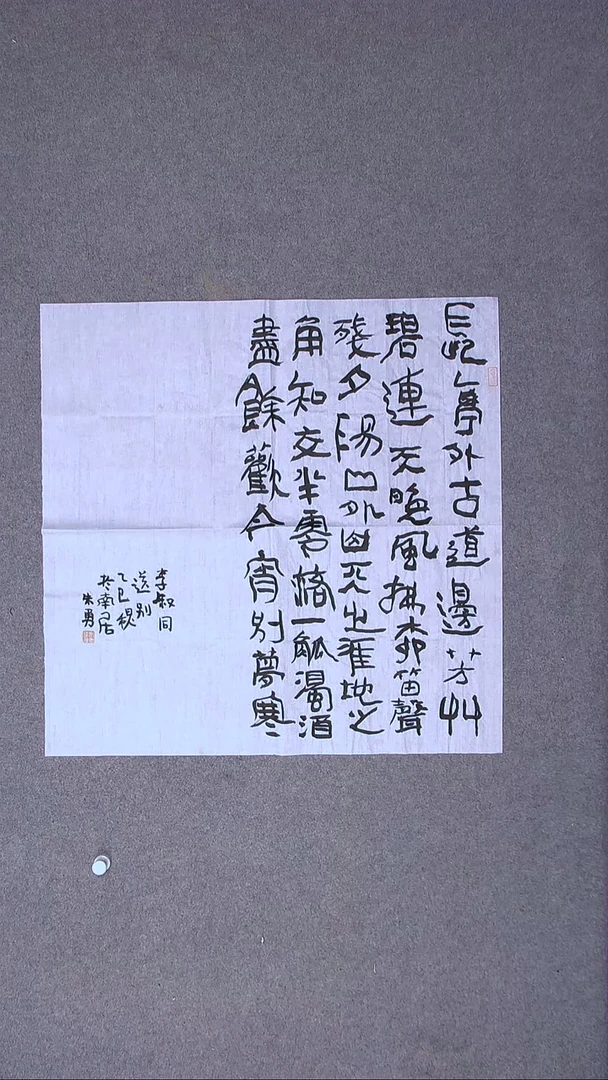 長亭外古道邊芳艸
碧連天晚風拂柳笛聲
殘夕陽山外山天之涯地之
角知交半零落一觚濁酒
盡餘歡今宵别夢寒
李叔同
送别
乙巳秋
於南居
朱勇